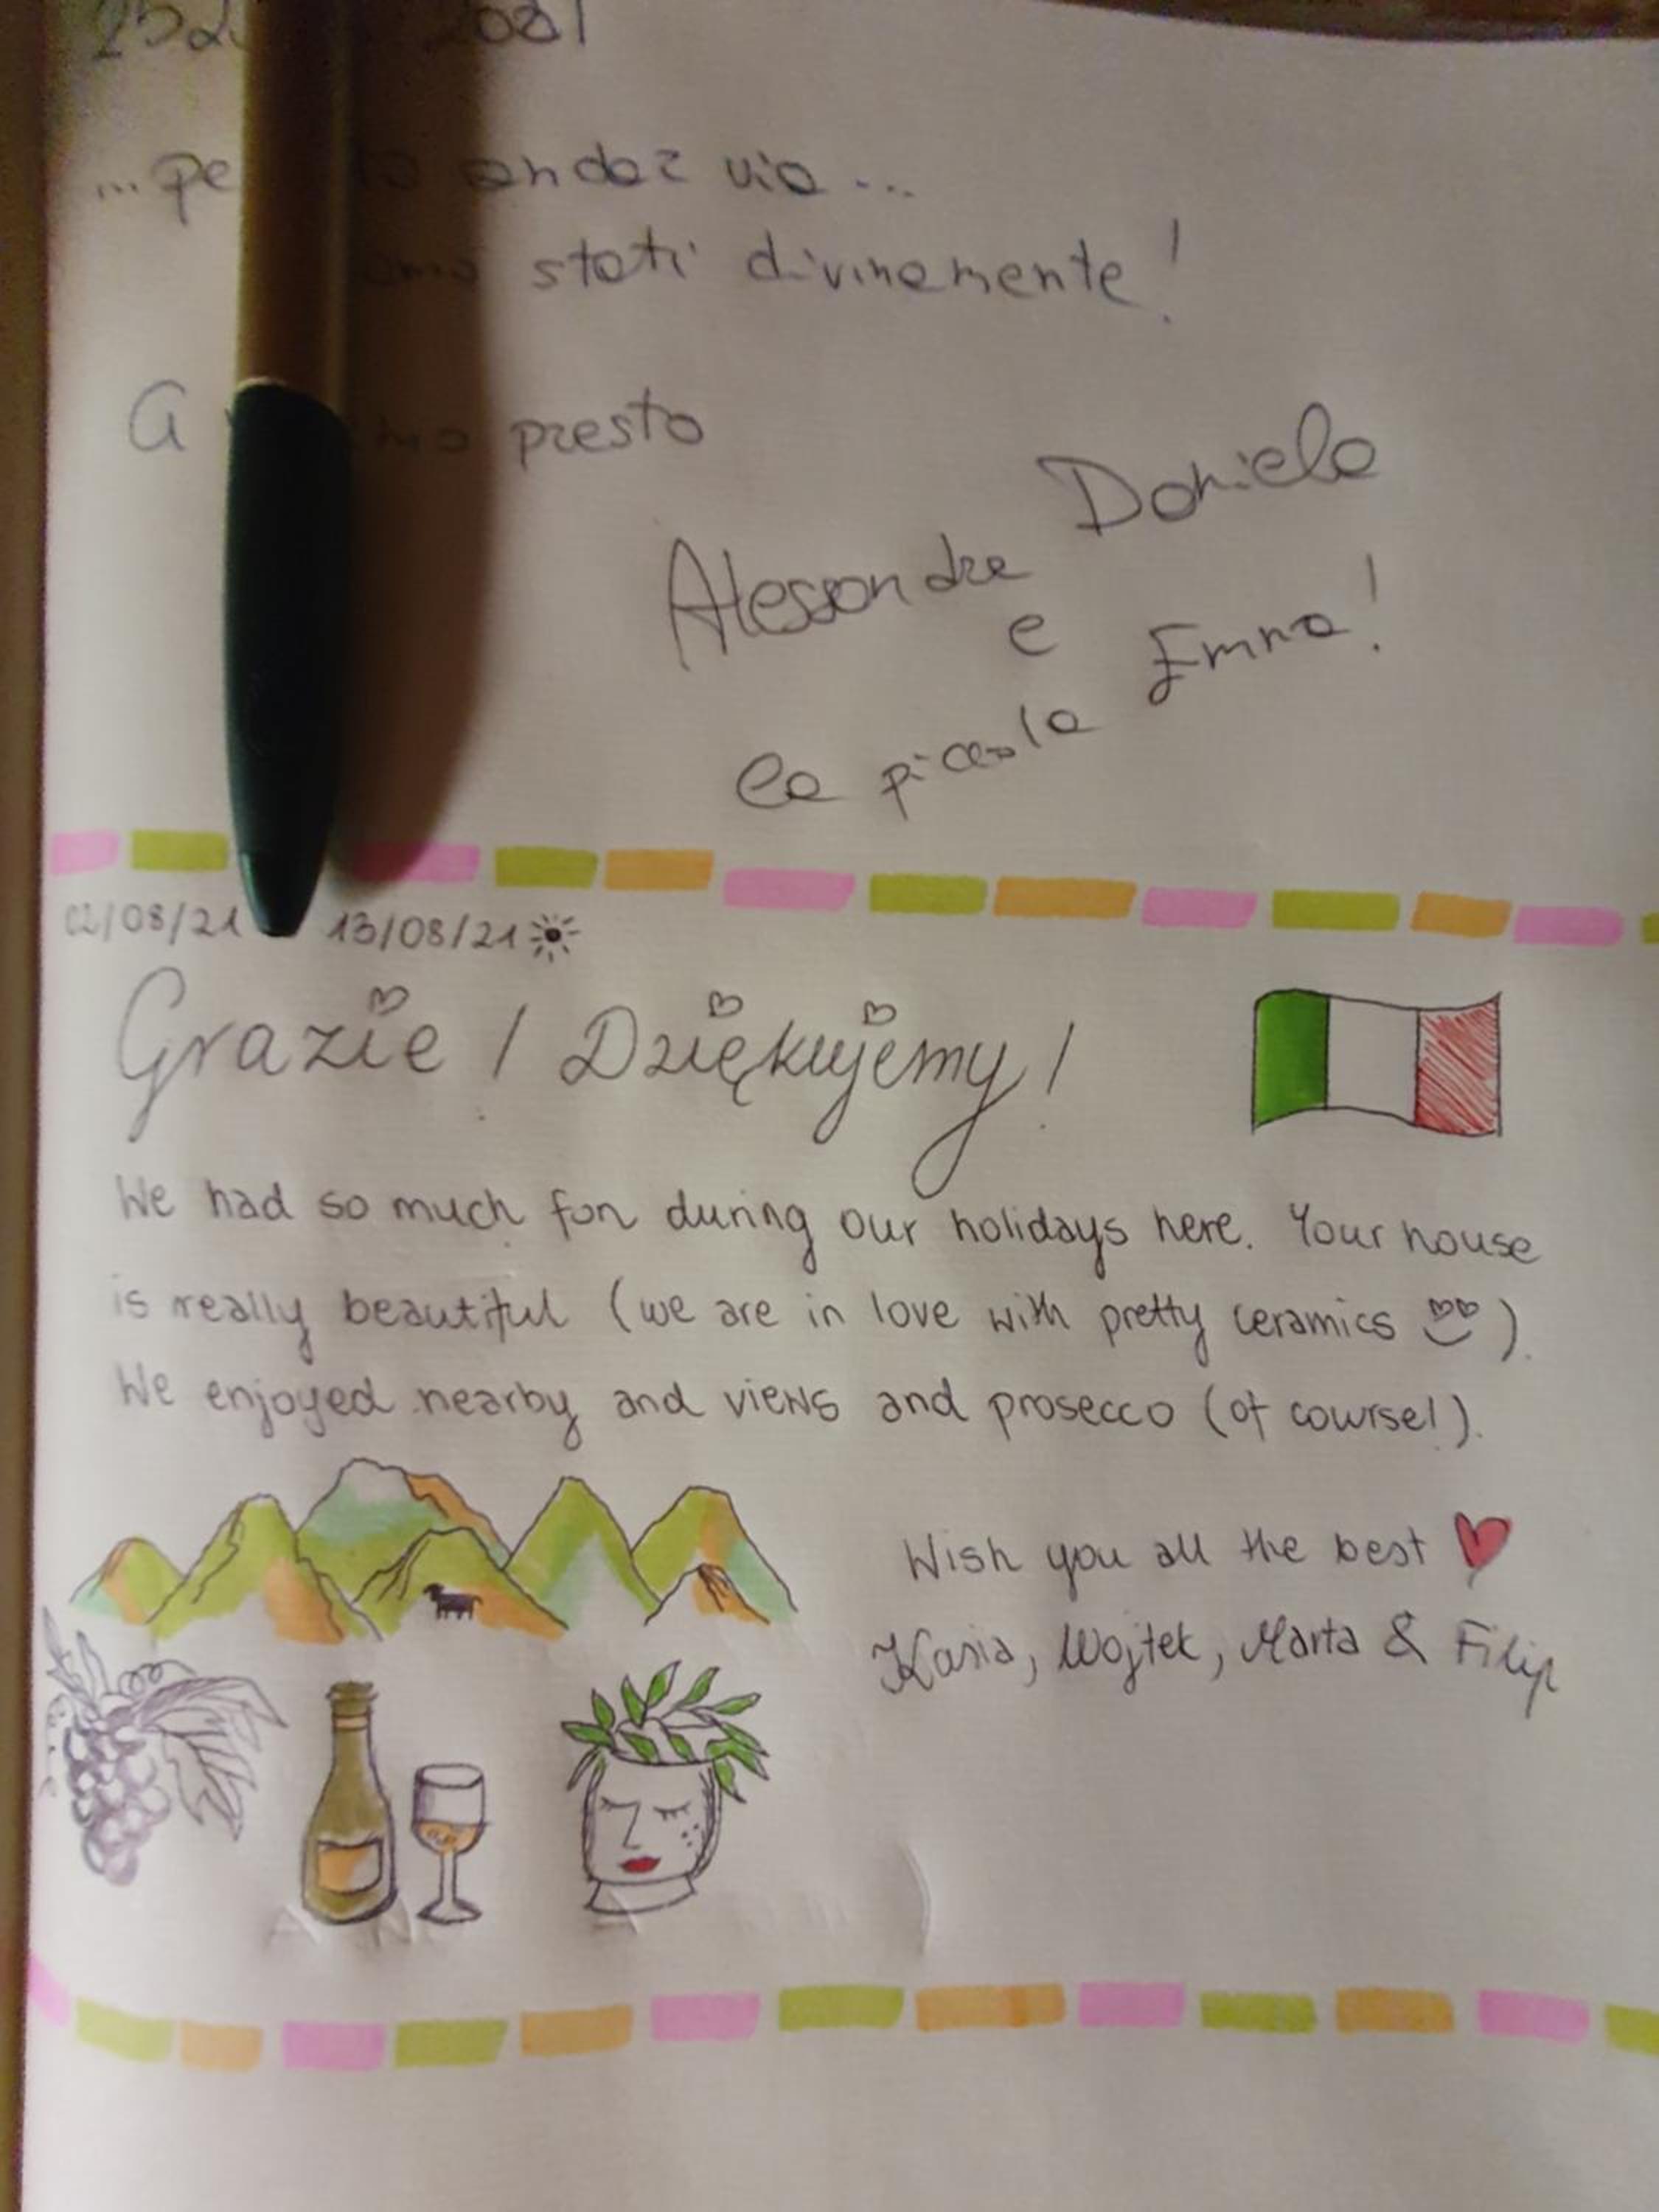 andar via...
stati divinamente!
a presto
Daniela
Alessandra
e
la piccola Emma!
02/08/21 13/08/21
Grazie! Dziękujemy!
We had so much fun during our holidays here. Your house
is really beautiful (we are in love with pretty ceramics).
We enjoyed nearby and views and prosecco (of course!).
Wish you all the best
Kasia, Wojtek, Marta & Filip